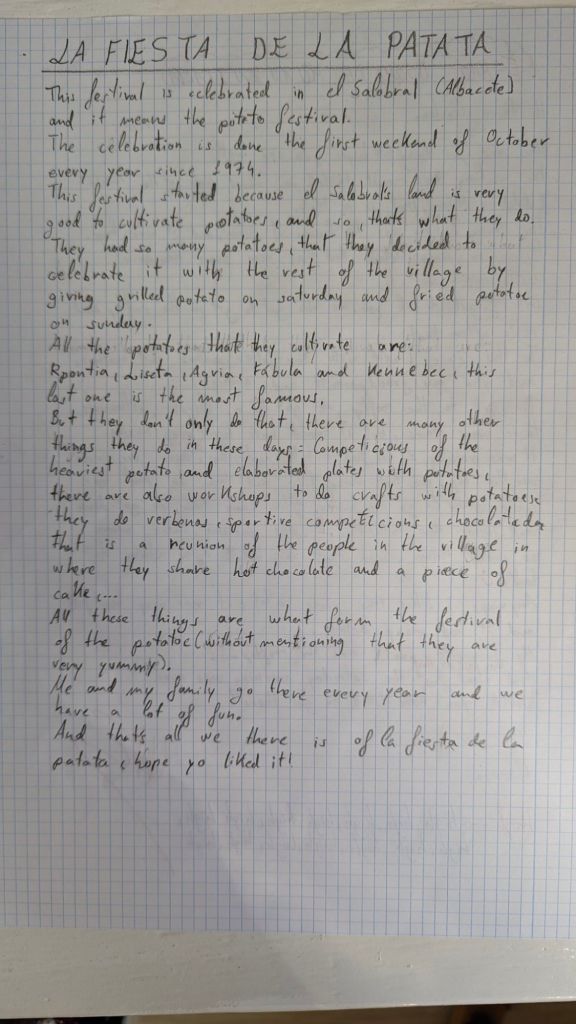 LA FIESTA DE LA PATATA
This festival is celebrated in el Salobral (Albacete)
and it means the potato festival.
The celebration is done the first weekend of October
every year since 1974.
This festival started because el Salobral's land is very
good to cultivate potatoes, and so, that's what they do.
They had so many potatoes, that they decided to
celebrate it with the rest of the village by
giving grilled potato on saturday and fried potatoe
on sunday.
All the potatoes that they cultivate are:
Rpontia, Liseta, Agria, Fábula and Kennebec, this
last one is the most famous.
But they don't only do that, there are many other
things they do in these days: Competicions of the
heaviest potato, and elaborated plates with potatoes,
there are also workshops to do crafts with potatoes,
they do verbenas, sportive competicions, chocolatada
that is a reunion of the people in the village in
where they share hot chocolate and a piece of
cake,...
All these things are what form the festival
of the potatoe (without mentioning that they are
very yummy).
Me and my family go there every year and we
have a lot of fun.
And that's all we there is of la fiesta de la
patata, hope yo liked it!